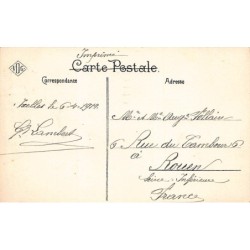 Imprimé
Carte Postale.
Correspondance
Adresse
Ixelles le 6-4-1912
Lambert
Mr et Me Aug.
6 Rue du Tambour 6
à
Rouen
Seine-Inférieure
France